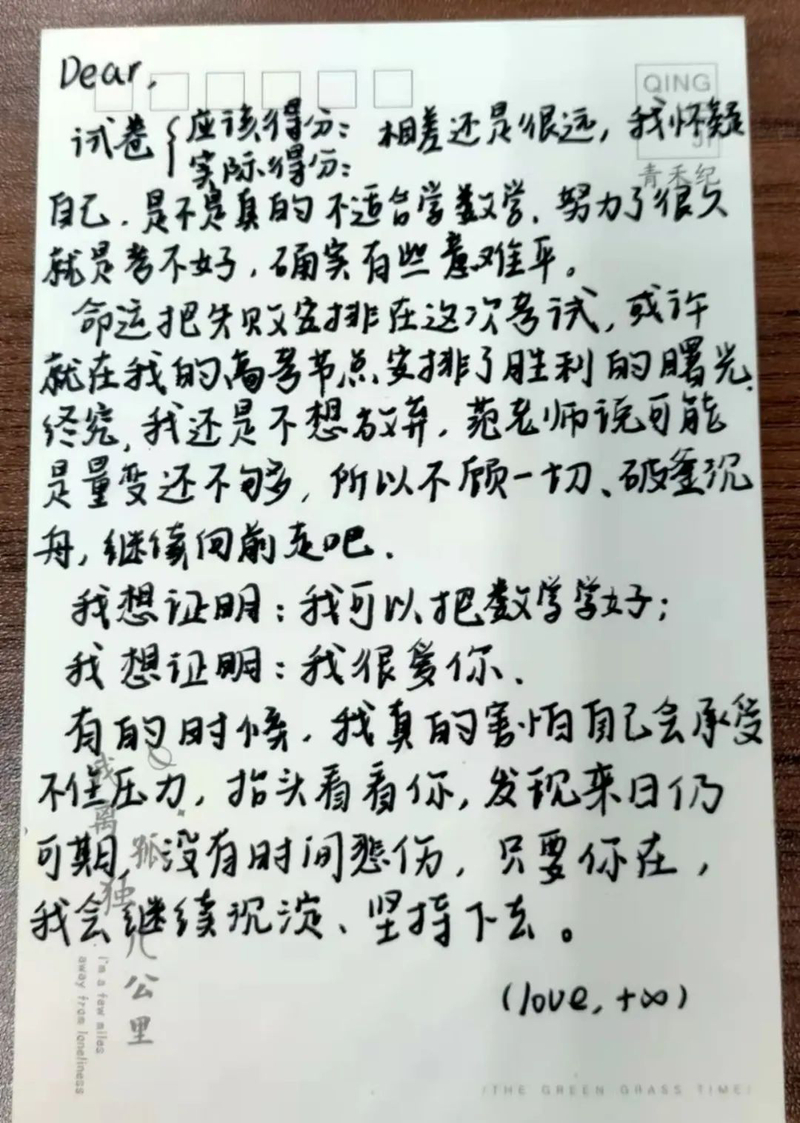 Dear,
QING
JI
青禾纪
试卷{应该得分：相差还是很远，我怀疑
实际得分：
自己，是不是真的不适合学数学，努力了很久
就是考不好，确实有些意难平。
命运把失败安排在这次考试，或许
就在我的高考节点安排了胜利的曙光，
终究，我还是不想放弃，范老师说可能
是量变还不够，所以不顾一切、破釜沉
舟，继续向前走吧．
我想证明：我可以把数学学好；
我想证明：我很爱你、
有的时候，我真的害怕自己会承受
不住压力，抬头看看你，发现来日仍
可期，没有时间悲伤，只要你在，
我会继续沉淀、坚持下去。
(love, +∞)
我离孤独几公里
i'm a few miles
away from loneliness
/THE GREEN GRASS TIME/